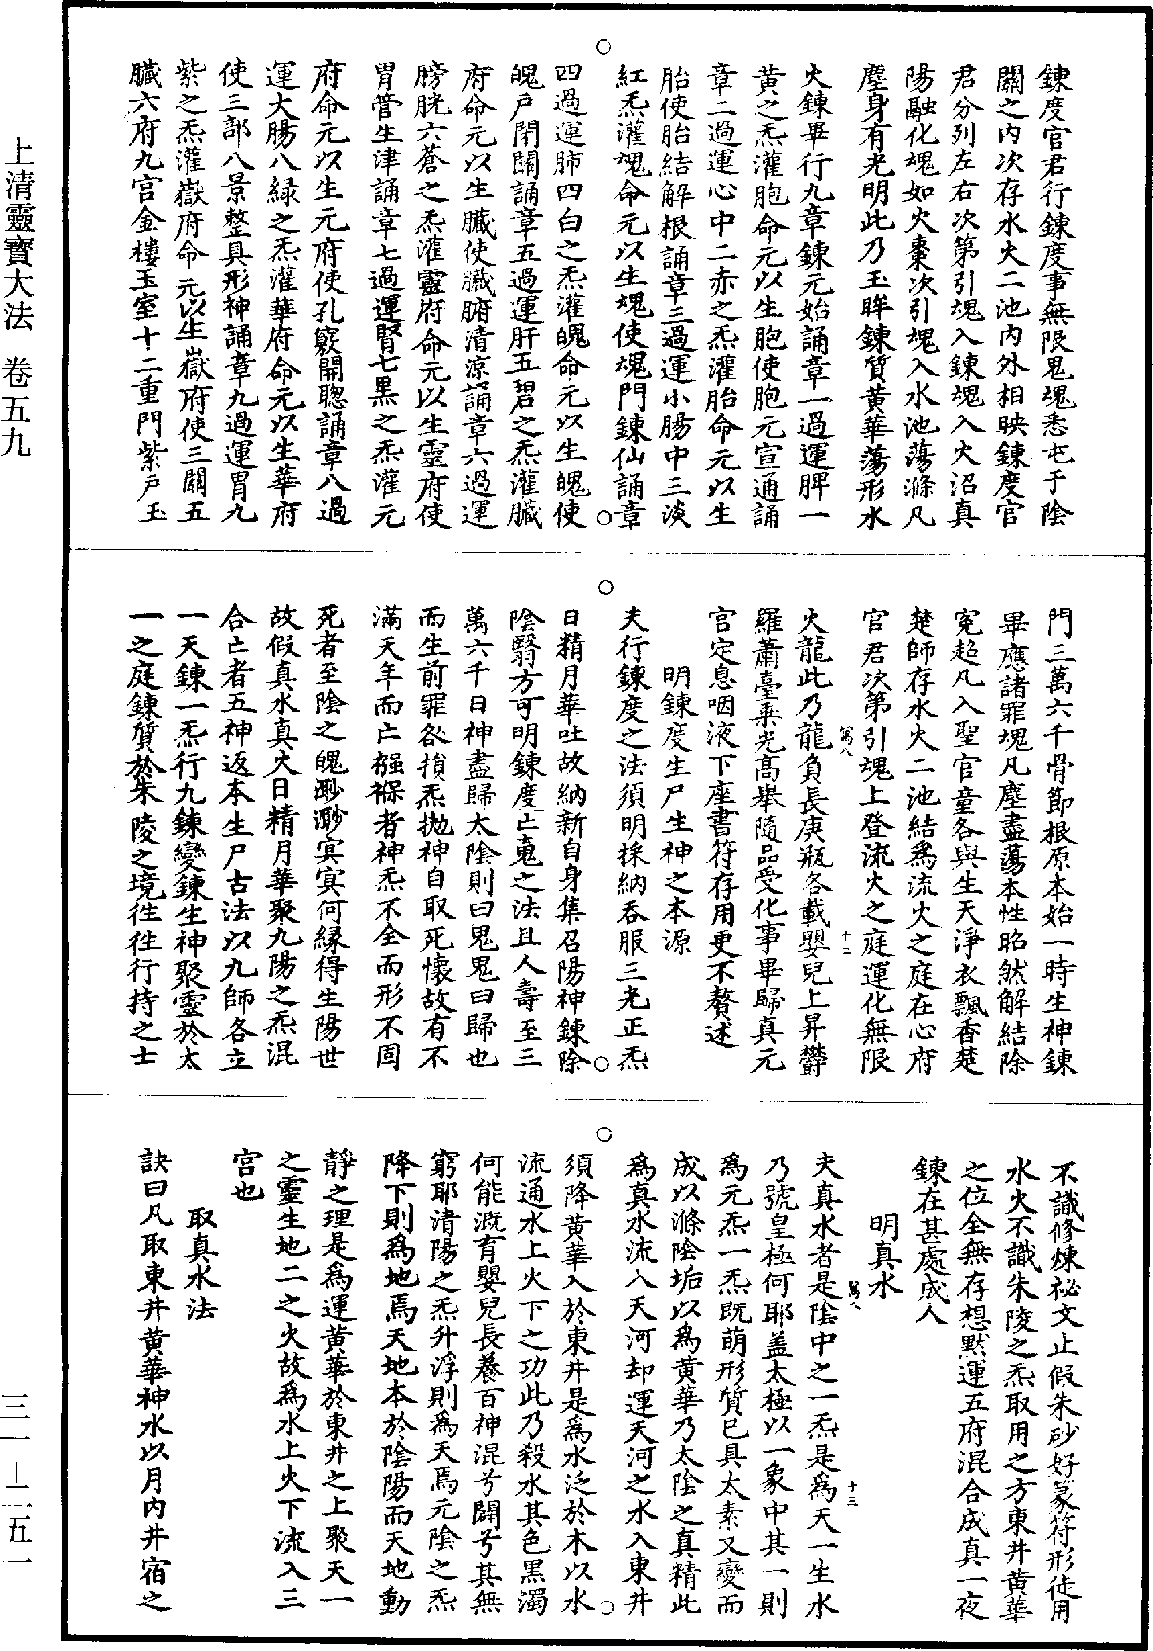 上清靈寶大法　卷五九
鍊度官君行鍊度事無限鬼魂悉屯于陰
關之内次存水火二池内外相映鍊度官
君分列左右次第引魂入鍊魂入火沼真
陽融化魂如火棗次引魂入水池蕩滌凡
塵身有光明此乃玉眸鍊質黄華蕩形水
火鍊畢行九章鍊元始誦章一過運脾一
黄之炁灌胞命元以生胞使胞元宣通誦
章二過運心中二赤之炁灌胎命元以生
胎使胎結解根誦章三過運小腸中三淡
紅炁灌魂命元以生魂使魂門鍊仙誦章
四過運肺四白之炁灌魄命元以生魄使
魄戶閉關誦章五過運肝五碧之炁灌臟
府命元以生臟使臟腑清涼誦章六過運
膀胱六蒼之炁灌靈府命元以生靈府使
胃管生津誦章七過運腎七黑之炁灌元
府命元以生元府使孔竅開聰誦章八過
運大腸八緑之炁灌華府命元以生華府
使三部八景整具形神誦章九過運胃九
紫之炁灌嶽府命元以生嶽府使三關五
臟六府九宫金樓玉室十二重門紫戶玉
門三萬六千骨節根原本始一時生神鍊
畢應諸罪塊凡塵盡蕩本性昭然解結除
冤超凡入聖官童各與生天淨衣飄香楚
楚師存水火二池結爲流火之庭在心府
官君次第引魂上登流火之庭運化無限
火龍此乃龍負長庚瓶各載嬰兒上昇欝
羅蕭臺乘光高舉隨品受化事畢歸真元
宫定息咽液下座書符存用更不贅述
明鍊度生尸生神之本源
夫行鍊度之法須明採納吞服三光正炁
日精月華吐故納新自身集召陽神鍊除
陰翳方可明鍊度亡䰟之法且人壽至三
萬六千日神盡歸太陰則曰鬼鬼曰歸也
而生前罪咎損炁抛神自取死懷故有不
滿天年而亡襁褓者神炁不全而形不固
死者至陰之魄渺渺冥冥何縁得生陽世
故假真水真火日精月華聚九陽之炁混
合亡者五神返本生尸古法以九師各立
一天鍊一炁行九鍊變鍊生神聚靈於太
一之庭鍊質於朱陵之境徃徃行持之士
不識修煉祕文止假朱砂好篆符形徒用
水火不識朱陵之炁取用之方東井黄華
之位全無存想默運五府混合成真一夜
鍊在甚處成人
明真水
夫真水者是陰中之一炁是爲天一生水
乃號皇極何耶盖太極以一象中其一則
爲元炁一炁既萌形質已具太素又變而
成以滌陰垢以爲黄華乃太陰之真精此
爲真水流入天河却運天河之水入東井
須降黄華入於東井是爲水泛於木以水
流通水上火下之功此乃殺水其色黑濁
何能溉育嬰兒長養百神混兮闢兮其無
窮耶清陽之炁升浮則爲天焉元陰之炁
降下則爲地焉天地本於陰陽而天地動
靜之理是爲運黄華於東井之上聚天一
之靈生地二之火故爲水上火下流入三
宫也
取真水法
訣曰凡取東井黄華神水以月内井宿之
十二
十三
三一—二五一